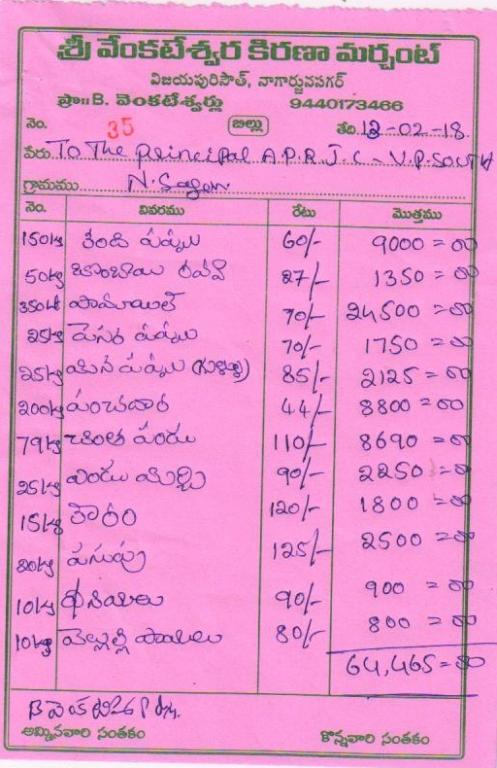 శ్రీ వేంకటేశ్వర కిరణా మర్చంట్
విజయపురిసౌత్, నాగార్జునపగర్
ప్రొ॥ B. వెంకటేశ్వర్లు 9440173466
నెం. 35 బిల్లు తేది 12-02-18.
పేరు To The Principal A.P.R.J.C - V.P. SOUTH
గ్రామము N. Sagar
నెం. వివరము రేటు మొత్తము
150kg కంది పప్పు 60/- 9000=00
50kg బొంబాయి రవ్వ 27/- 1350=00
350kg పామాయిల్ 70/- 24,500=00
25kg పెసర పప్పు 70/- 1750=00
25kg మినపప్పు (గుళ్ళు) 85/- 2125=00
200kg పంచదార 44/- 8800=00
79kg చింత పండు 110/- 8690=00
25kg ఎండు మిర్చి 90/- 2250=00
15kg కారం 120/- 1800=00
20kg పసుపు 125/- 2500=00
10kg ధనియాలు 90/- 900=00
10kg వెల్లుల్లి పాయలు 80/- 800=00
64,465=00
అమ్మినవారి సంతకం కొన్నవారి సంతకం